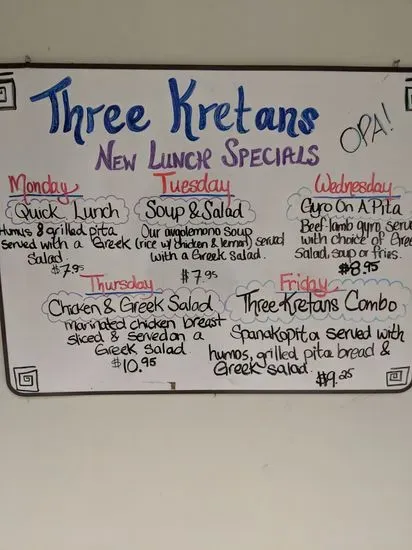 Three Kretans
OPA!
NEW LUNCH SPECIALS
Monday
Quick Lunch
Humus & grilled pita
served with a Greek
Salad.
$7.95
Tuesday
Soup & Salad
Our avgolemono soup
(rice w/ chicken & lemon) served
with a Greek Salad.
$7.95
Wednesday
Gyro On A Pita
Beef lamb gyro serv
with choice of Gree
Salad, soup or fries.
$8.95
Thursday
Chicken & Greek Salad
marinated chicken breast
sliced & served on a
Greek Salad
$10.95
Friday
Three Kretans Combo
Spanakopita served with
humos, grilled pita bread &
Greek salad.
$9.25